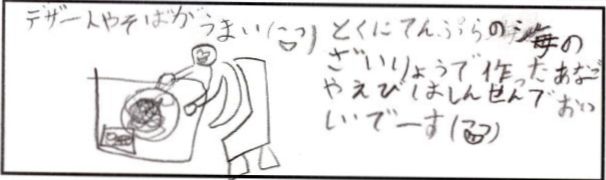 デザートやそばがうまい(ごつ)
とくにてんぷらの海の
ざいりょうで作ったあなご
やえびはしんせんでおい
しいでーす